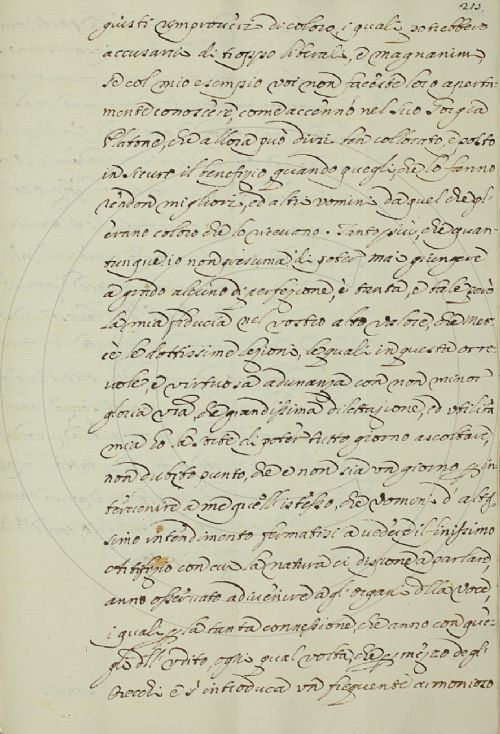 215.
giusti rimproveri di coloro, i quali potrebbero
accusarvi di troppo liberali, e magnanimi,
se col mio esempio voi non faceste loro aperta-
mente conoscere, come accennò nel suo Gorgia
Platone, che allora può dirsi ben collocato, e posto
in sicuro il benefizio, quando quegli, che lo fanno
rendon migliori, ed altri uomini da quel che pri
erano coloro che lo ricevono. Tanto più, che quan-
tunque io non presuma di poter mai giungere
a grado alcuno di perfezione, è tanta, e tale però
la mia fiducia nel vostro alto valore, che mer-
cè le dottissime lezioni, le quali in questa orre-
vole, e virtuosa adunanza con non minor
gloria v̄r̄a, che grandissima dilettazione, ed utilità
mia ho la sorte di poter tutto giorno ascoltare,
non dubito punto, che e' non sia un giorno per in
tervenire a me quell'istesso, che uomini d'altis-
simo intendimento fermatisi a vedere il finissimo
artifizio con cui la natura ci dispone a parlare,
anno osservato adivenire agli organi della voce,
i quali per la tanta connessione, che anno con que-
gli dell'udito, ogni qual volta, che per mezzo degli
orecchi e' s'introduca un frequente armonioso